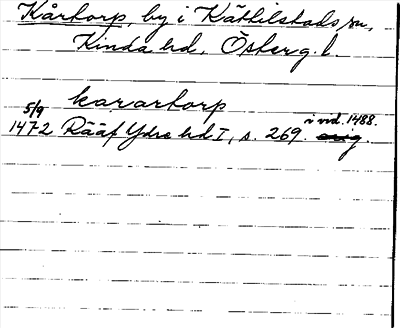 Kårtorp, by i Kättilstads sn,
Kinda hd, Östergl.
karartorp
5/9
1472 Rääf Ydre hd I, s. 269. i vid. 1488.
orig.